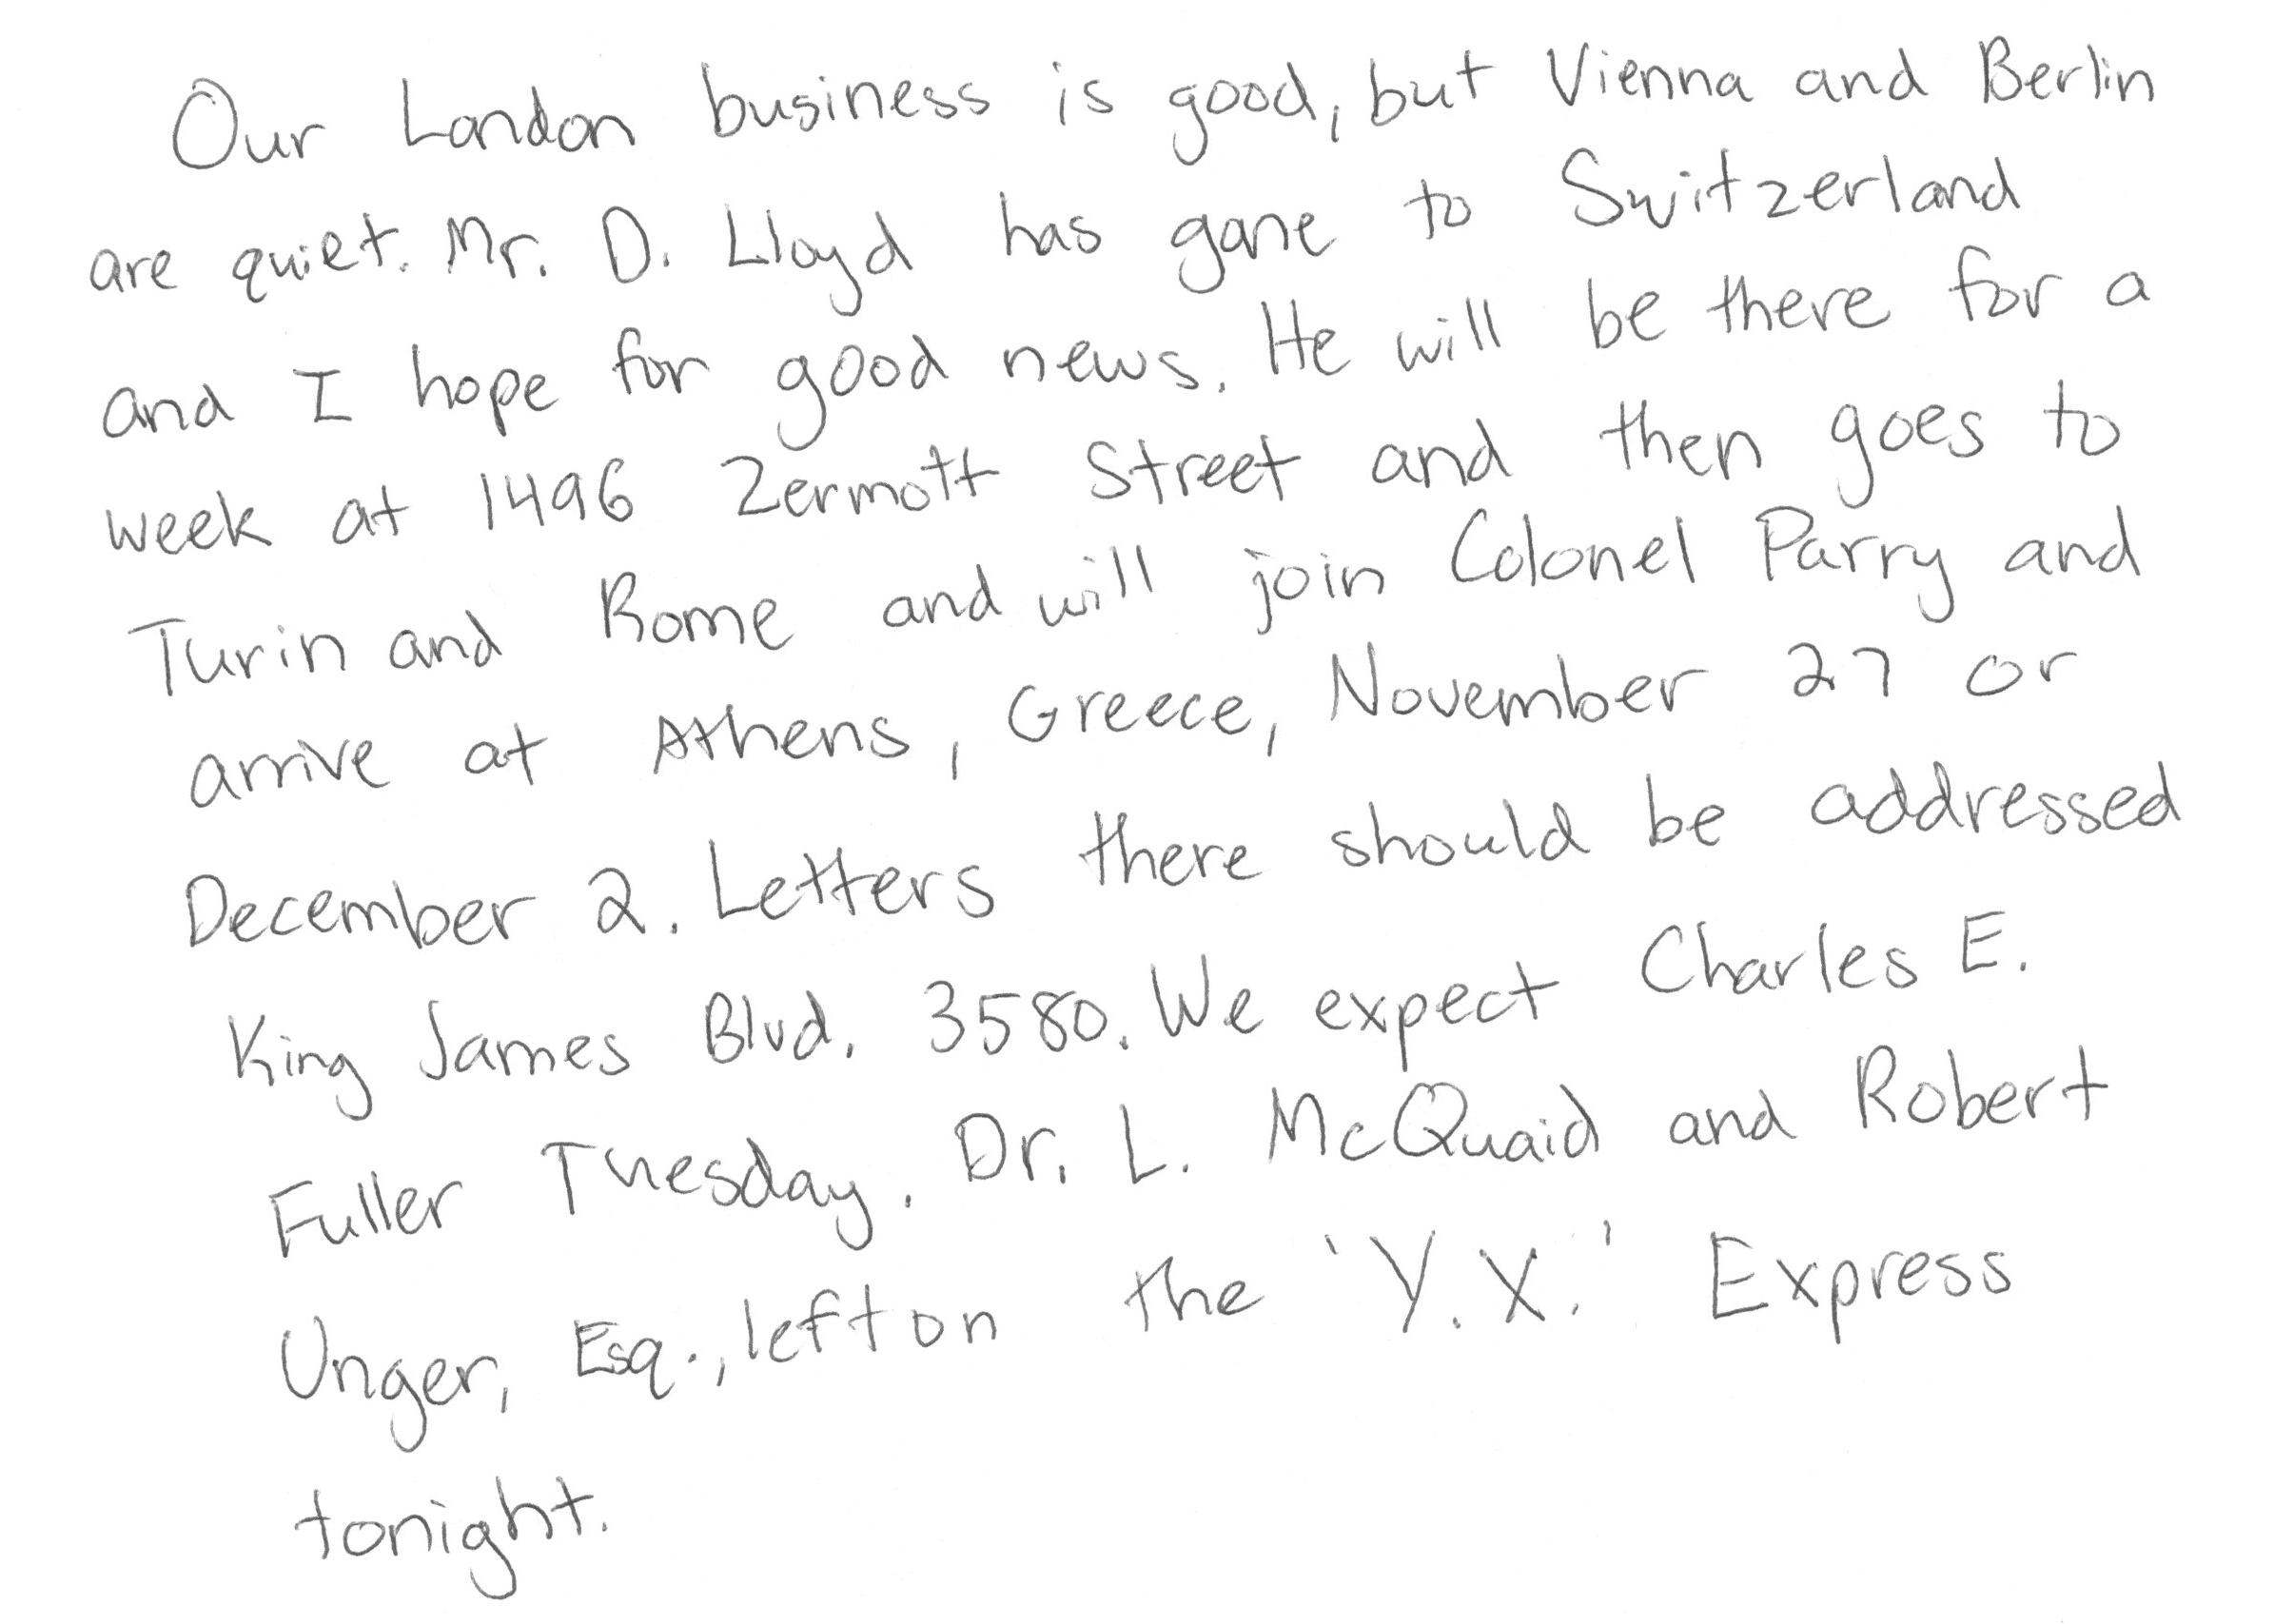 Our London business is good, but Vienna and Berlin
are quiet. Mr. D. Lloyd has gone to Switzerland
and I hope for good news. He will be there for a
week at 1496 Zermott Street and then goes to
Turin and Rome and will join Colonel Parry and
arrive at Athens, Greece, November 27 or
December 2. Letters there should be addressed
King James Blvd. 3580. We expect Charles E.
Fuller Tuesday. Dr. L. McQuaid and Robert
Unger, Esq., left on the 'Y.X.' Express
tonight.